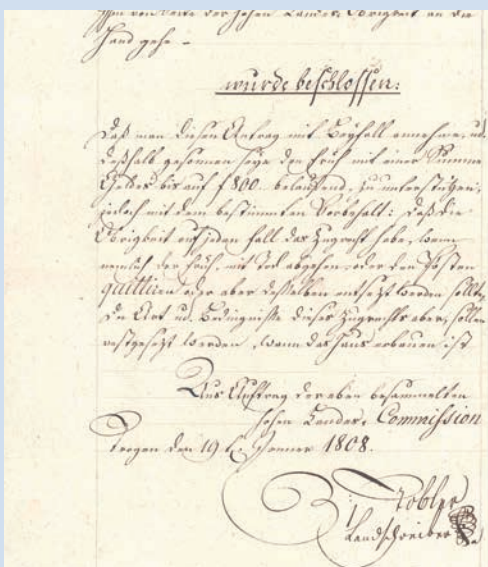 ihm von Seite der hohen Landes-Obrigkeit an die
Hand gehe –
wurde beschlossen:
Daß man diesen Antrag mit Beyfall annehme, ud.
deßhalb gesonnen seye den Früh mit einer Summe
Geldes bis auf f 800. belaufend, zu unterstützen,
jedoch mit dem bestimmten Vorbehalt: Daß die
Obrigkeit auf jeden Fall das Zugrecht habe, wann
nemlich der Früh, mit Tod abgehen, oder den Posten
quittiren oder aber desselben entsezt werden sollte,
Die Art ud. Bedingnisse dieses Zugrechts aber, sollen
vestgesezt werden, wann das Haus erbauen ist
Aus Auftrag der eben besammelten
hohen Landes-Commission
Trogen den 19 t. Jenner 1808.
Tobler
Landschreiber